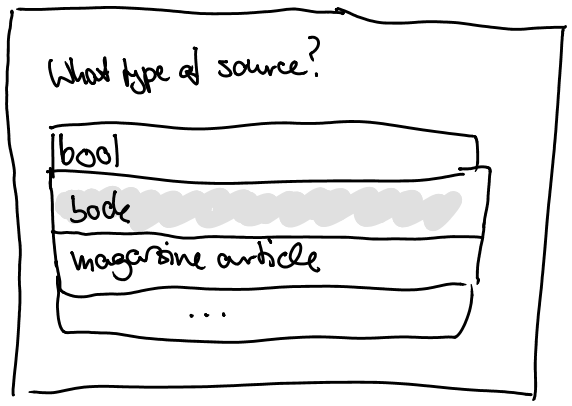 What type of source?
bool
book
magazine article
...